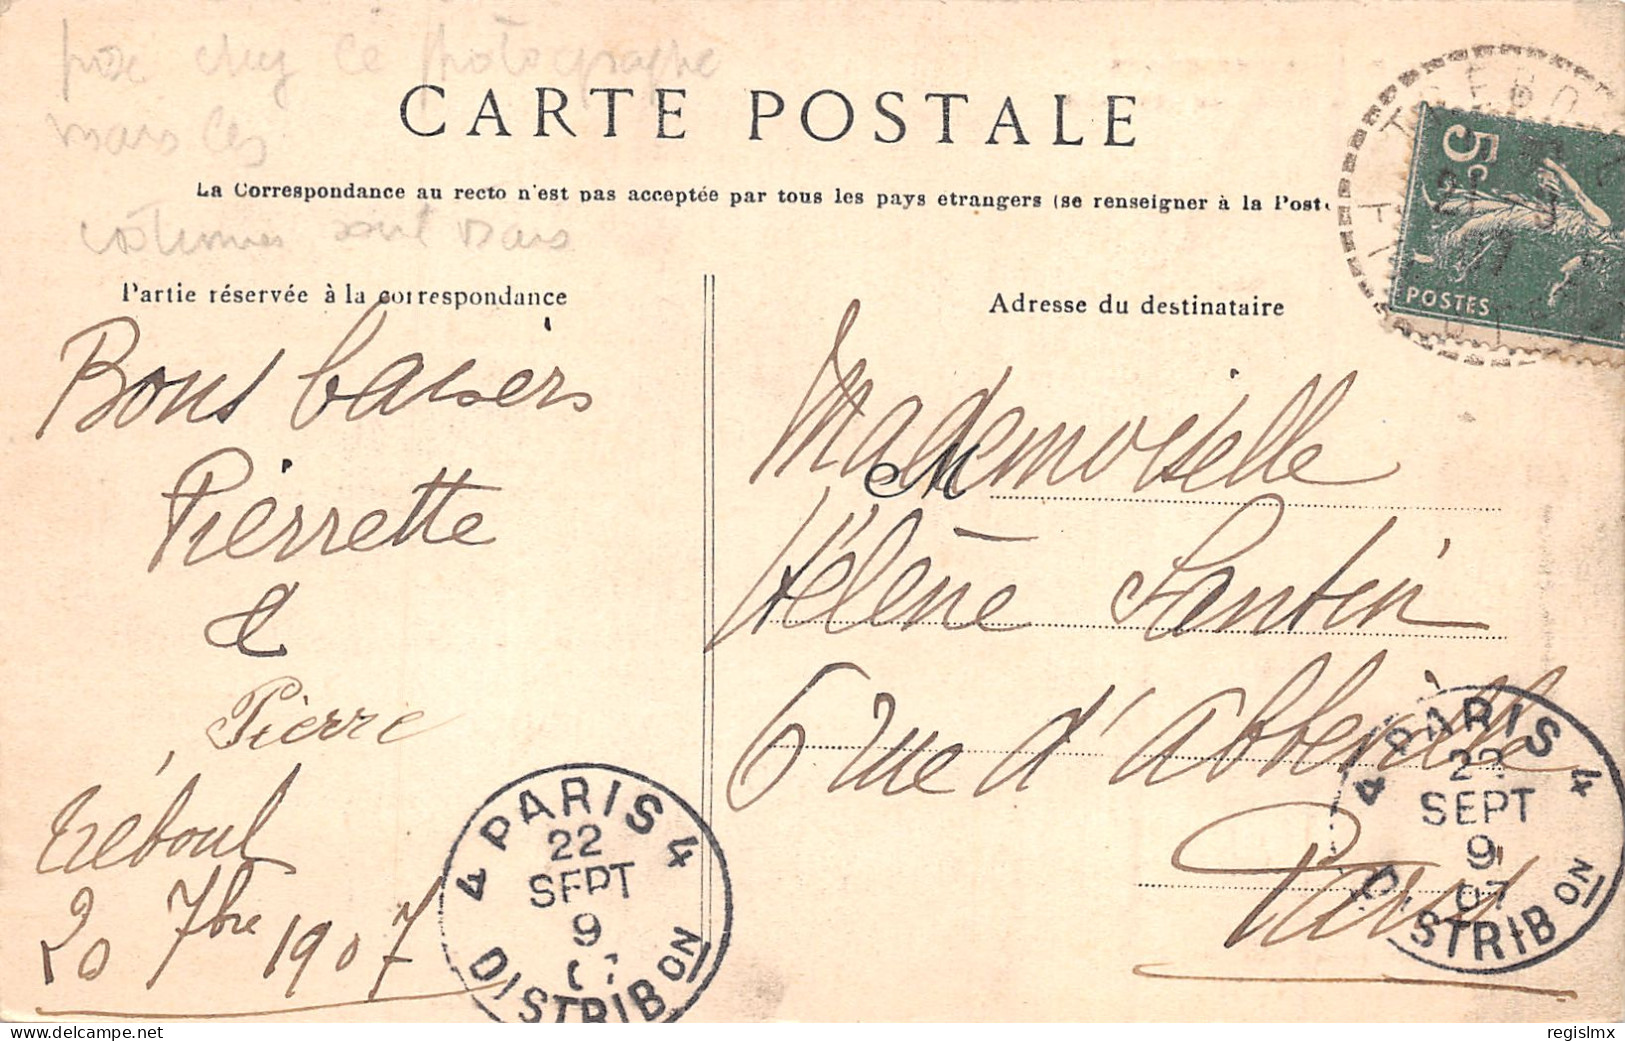 pose chez le photographe
mais les
CARTE POSTALE
La Correspondance au recto n'est pas acceptée par tous les pays etrangers (se renseigner à la Poste
costumes sont vrais
Partie réservée à la correspondance
Bons baisers
Pierrette
&
Pierre
Tréboul
20 7bre 1907
Adresse du destinataire
Mademoiselle
M
Hélène Santin
6 rue d'Abbeville
Paris
5c
POSTES
TREBOUL
21
07
4 PARIS 4
22
SEPT
9
07
DISTRIBON
4 PARIS 4
22
SEPT
9
07
DISTRIBON
delcampe.net
regislmx